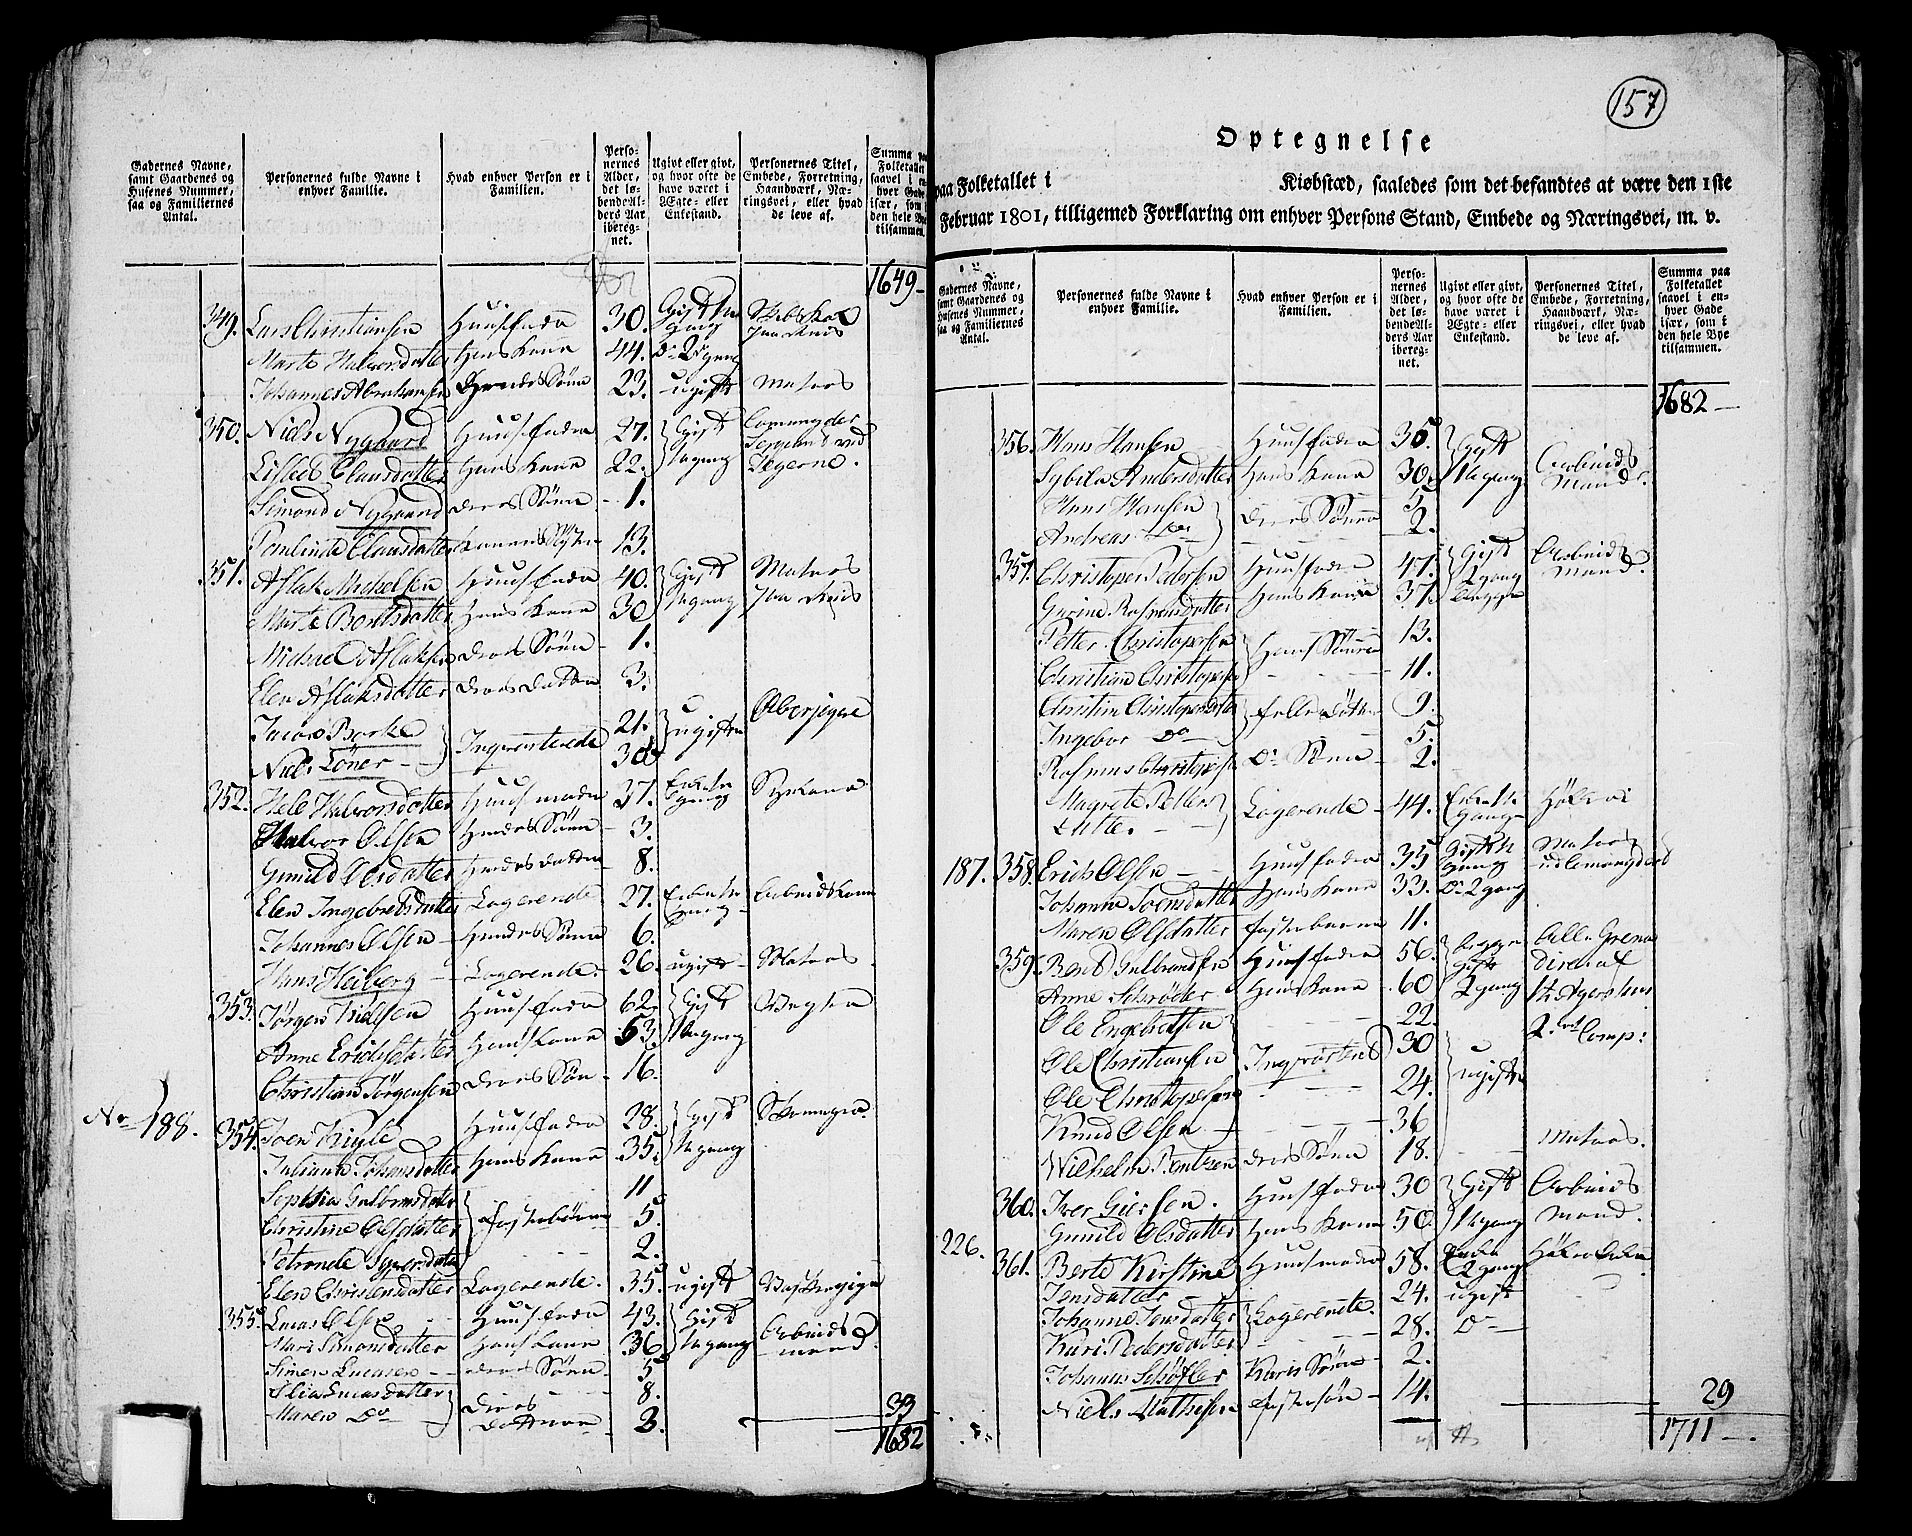 157
Optegnelse
paa Folketallet i Kiøbstæd, saaledes som det befandtes at være den 1ste
Februar 1801, tilligemed Forklaring om enhver Persons Stand, Embede og Næringsvei, m. v.
Gadernes Navne, samt Gaardenes og Husenes Nummer, saa og Familiernes Antal.
Personernes fulde Navne i enhver Familie.
Hvad enhver Person er i Familien.
Personernes Alder, det løbende Alders Aar iberegnet.
Ugivt eller givt, og hvor ofte de have været i Ægte- eller Enkestand.
Personernes Titel, Embede, Forretning, Haandværk, Næringsvei, eller hvad de leve af.
Summa paa Folketallet saavel i enhver Gade især, som i den hele Bye tilsammen.
1649
349. Lars Christiansen Huusfader 30. Gift
Marte Halvorsdatter Hans Kone 44. Do 2 gang
Johannes Abrahamsen Hendes Søn 23. ugift Matros
350. Niels Nygaard Huusfader 27. Gift
Lisbed Clausdatter Hans Kone 22. 1te gang
Simond Nygaard deres Søn 1.
Clausdatter Konens Syster 13.
351. Aslak Michelsen Huusfader 40. Gift Matros
Marte Bentsdatter Hans Kone 30 1te gang
Michael Aslaksen deres Søn 1.
Elen Aslaksdatter deres datter 3.
Jacob Borke 21. ugifte
Niels Löner Inqvarterede 30
352. Hele Halvorsdatter Huusmoder 37. Enke
Halvor Olsen Hendes Søn 3.
Gunild Olsdatter Hendes datter 8.
Elen Ingebretsdatter Logerende 27. Enke Arbeidskone
Johannes Olsen Hendes Søn 6.
Hans Heiberg Logerende 26. ugift Matros
353. Jørgen Nielsen Huusfader 62. Gift Vægter
Anne Erichsdatter Hans Kone 53. 1te gang
Christian Jørgensen deres Søn 16.
No 188.
354. Joen Huusfader 28. Gift
Juliane Johansdatter Hans Kone 35. 1te gang
Sophia Gulbransdatter 11
Christine Olsdatter Fosterbørn 5.
Petronele Syversdatter 2.
Elen Christensdatter Logerende 35 ugift
355. Lucas Olsen Huusfader 43. Gift Arbeids
Mari Simonsdatter Hans Kone 36 1te gang mand
Simen Lucasen deres Søn 5
Lucasdatter deres 8.
Maren Do Døttre 3.
33
1682
Gadernes Navne, samt Gaardenes og Husenes Nummer, saa og Familiernes Antal.
Personernes fulde Navne i enhver Familie.
Hvad enhver Person er i Familien.
Personernes Alder, det løbende Alders Aar iberegnet.
Ugivt eller givt, og hvor ofte de have været i Ægte- eller Enkestand.
Personernes Titel, Embede, Forretning, Haandværk, Næringsvei, eller hvad de leve af.
Summa paa Folketallet saavel i enhver Gade især, som i den hele Bye tilsammen.
1682
356. Hans Hansen Huusfader 35. Gift Arbeids
Sybila Andersdatter Hans Kone 30. 1te gang Mand.
Hans Hansen 5
Andreas Do deres Sønner 2.
357. Christopher Pedersen Huusfader 47. Gift Arbeids
Gurine Rasmusdatter Hans Kone 37. 2 gang Mand.
Petter Christophersen 13.
Christian Christophersen Hans Sønner 11.
Christine Christophersdatter fælles døttre 9.
Ingebor Do 5.
Rasmus Christophersen Do Søn 2.
Magrete Petters Logerende 44. Enke
datter.
187. 358. Erich Olsen Huusfader 35 Gift Matros
Johanne Joensdatter Hans Kone 33. Do 2 gang
Maren Olsdatter Fosterbarn 11.
359. Bent Gulbrandsen Huusfader 56. begge
Anne Schrøder Hans Kone 60 gift 2 gang
Ole Engebretsen 22.
Ole Christiansen Inqvartered 30
Ole Christophersen 24. ugifte
Knud Olsen 36
Wilhelm Bentsen deres Søn 18. Matros.
360. Iver Giersen. Huusfader 30 Gift Arbeids
Gunild Olsdatter Hans Kone 50 1te gang mand.
226.
361. Berte Kirstine Huusmoder 58. Enke 2 gang
Jensdatter
Johanne Jensdatter Logerende 24. ugift
Kari Pedersdatter 28. Do
Johannes Schøfler Karis Søn 2.
Niels Mathisen Fostersøn 14.
29
1711